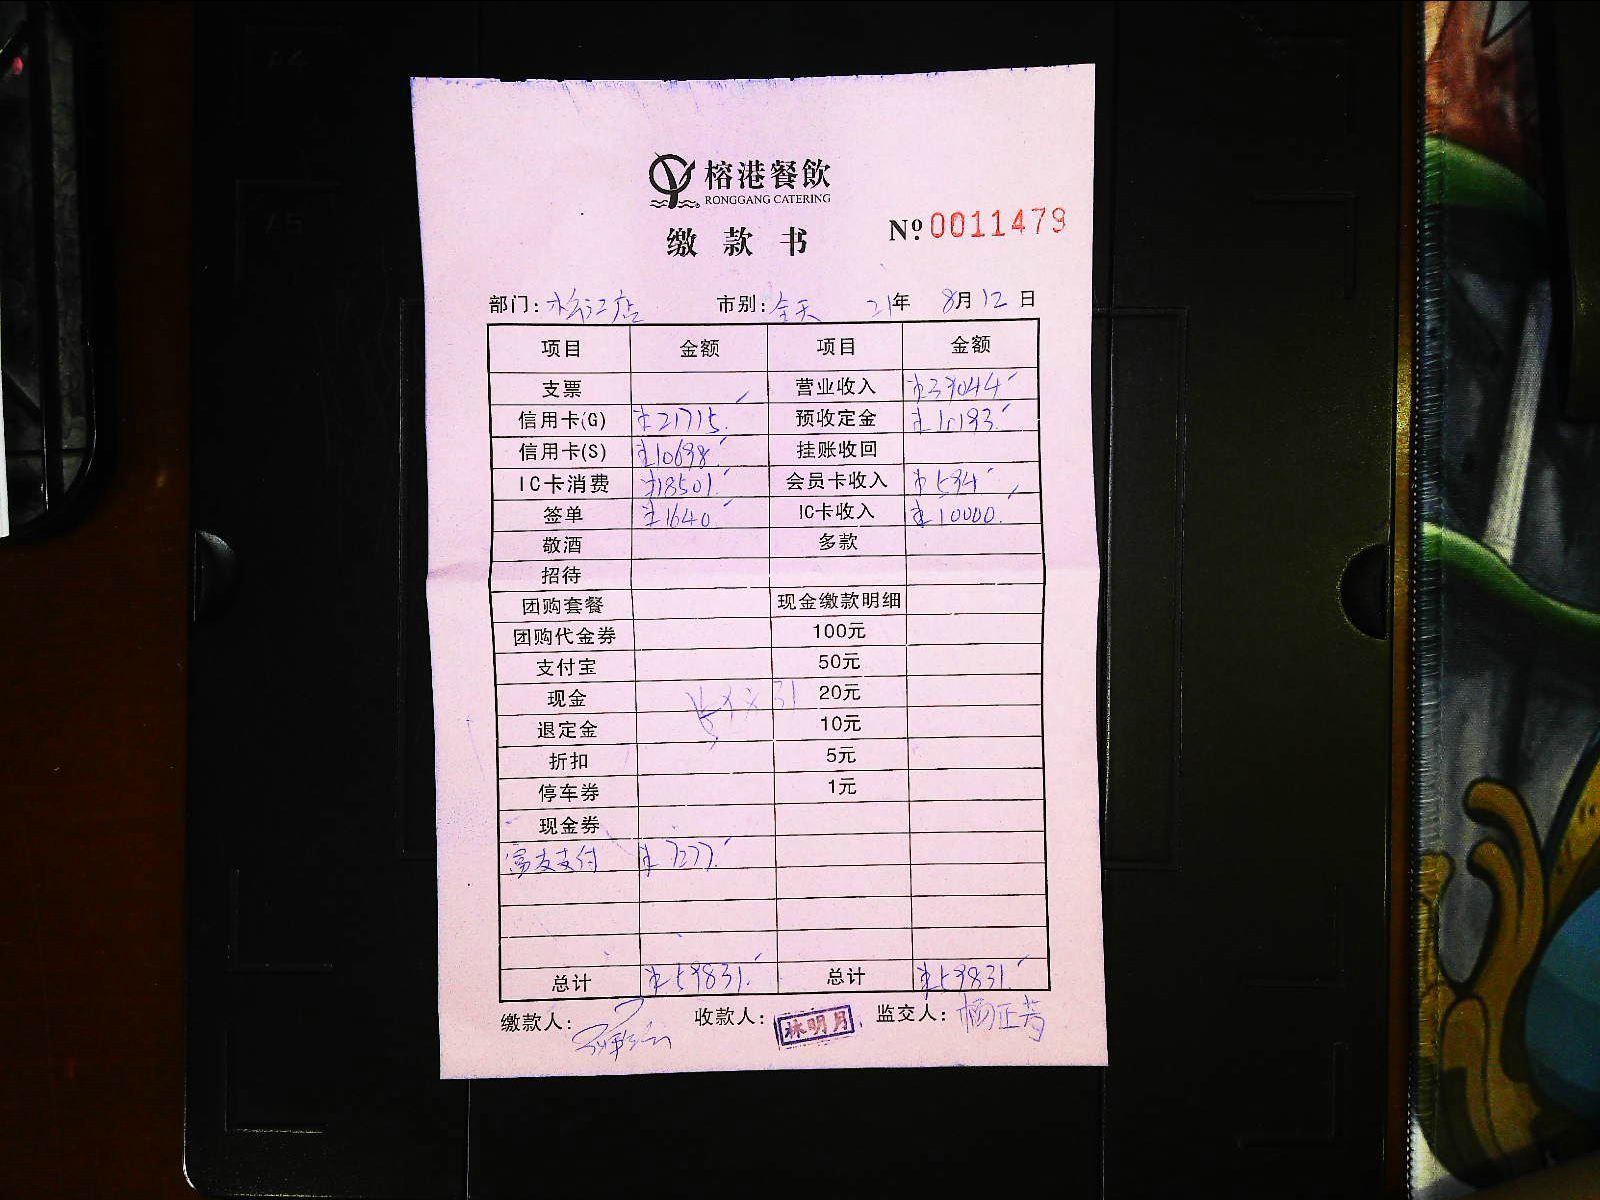 榕港餐飲
RONGGANG CATERING
缴款书 Nº 0011479
部门: 松江店 市别: 全天 21年 8月 12 日
项目 金额 项目 金额
支票 营业收入 ¥39044
信用卡(G) ¥21715. 预收定金 ¥10193.
信用卡(S) ¥10698. 挂账收回
IC卡消费 ¥18501. 会员卡收入 ¥594
签单 ¥1640. IC卡收入 ¥10000.
敬酒 多款
招待
团购套餐 现金缴款明细
团购代金券 100元
支付宝 50元
现金 20元
退定金 10元
折扣 5元
停车券 1元
现金券
富友支付 ¥7277.
总计 ¥59831. 总计 ¥59831.
缴款人: 收款人: 林明月 监交人: 杨正芳